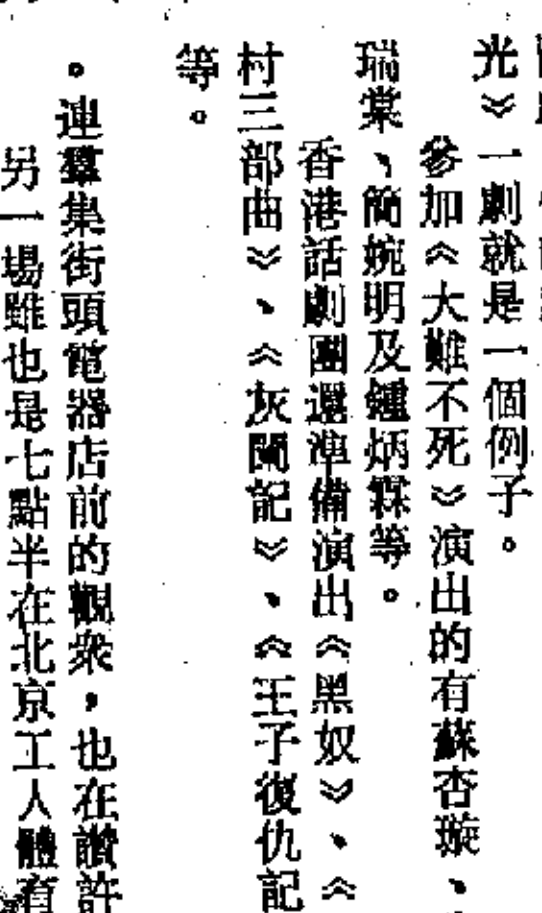 光》一劇就是一個例子。
參加《大難不死》演出的有蘇杏璇、
瑞棠、簡婉明及鍾炳霖等。
香港話劇團還準備演出《黑奴》、《
村三部曲》、《灰闌記》、《王子復仇記
等。
。連羣集街頭電器店前的觀衆，也在讚許
另一場雖也是七點半在北京工人體育